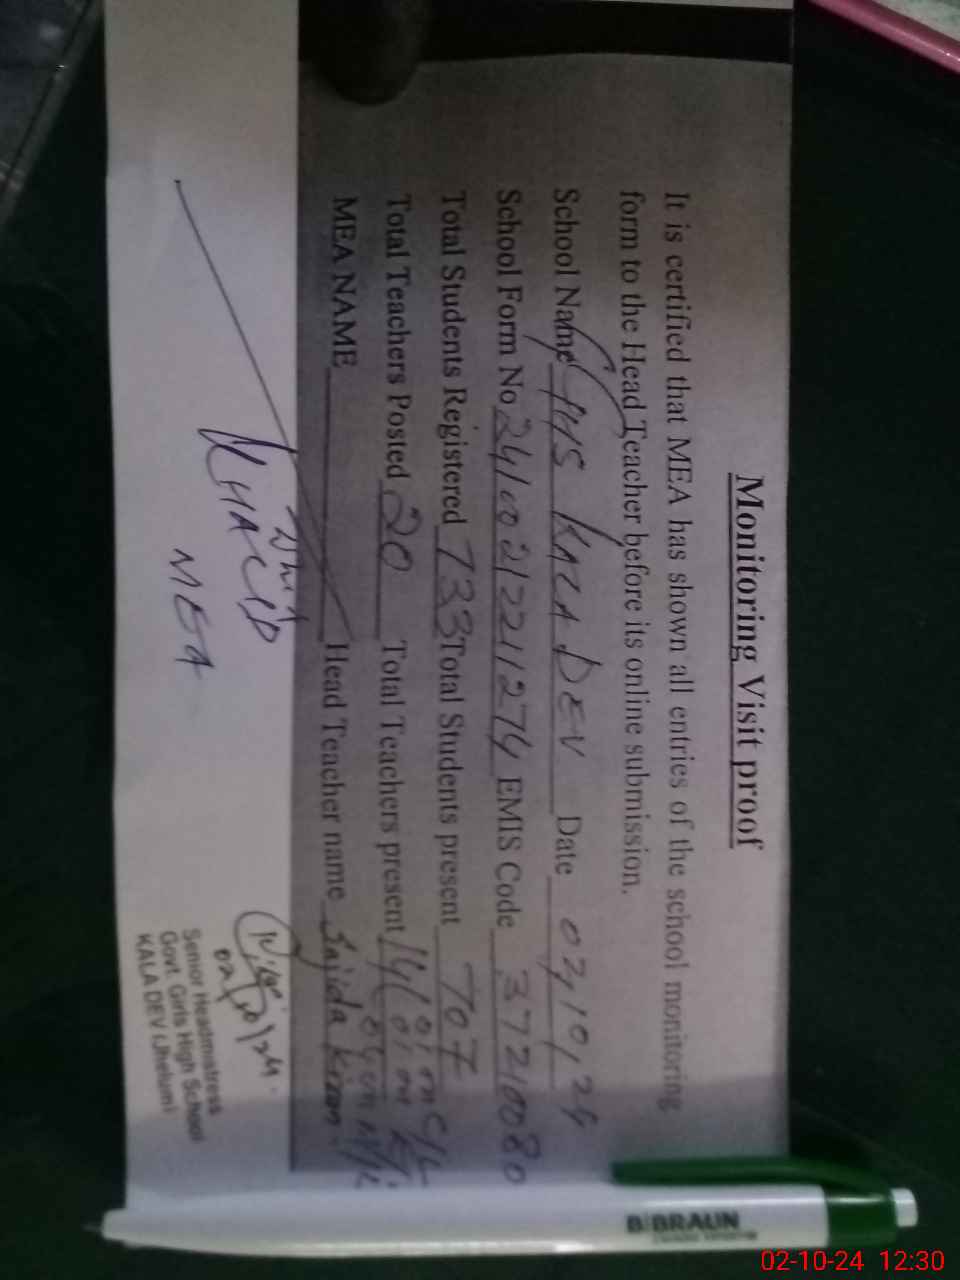 Monitoring Visit proof
It is certified that MEA has shown all entries of the school monitoring
form to the Head Teacher before its online submission.
School Name GHS KALA DEV Date 02,10,24
School Form No 24100212211274 EMIS Code 37210080
Total Students Registered 733 Total Students present 707
Total Teachers Posted 20 Total Teachers present 14
MEA NAME Head Teacher name Sajida Kiran
MEA
Senior Headmistress
Govt. Girls High School
KALA DEV (Jhelum)
B|BRAUN
02-10-24 12:30